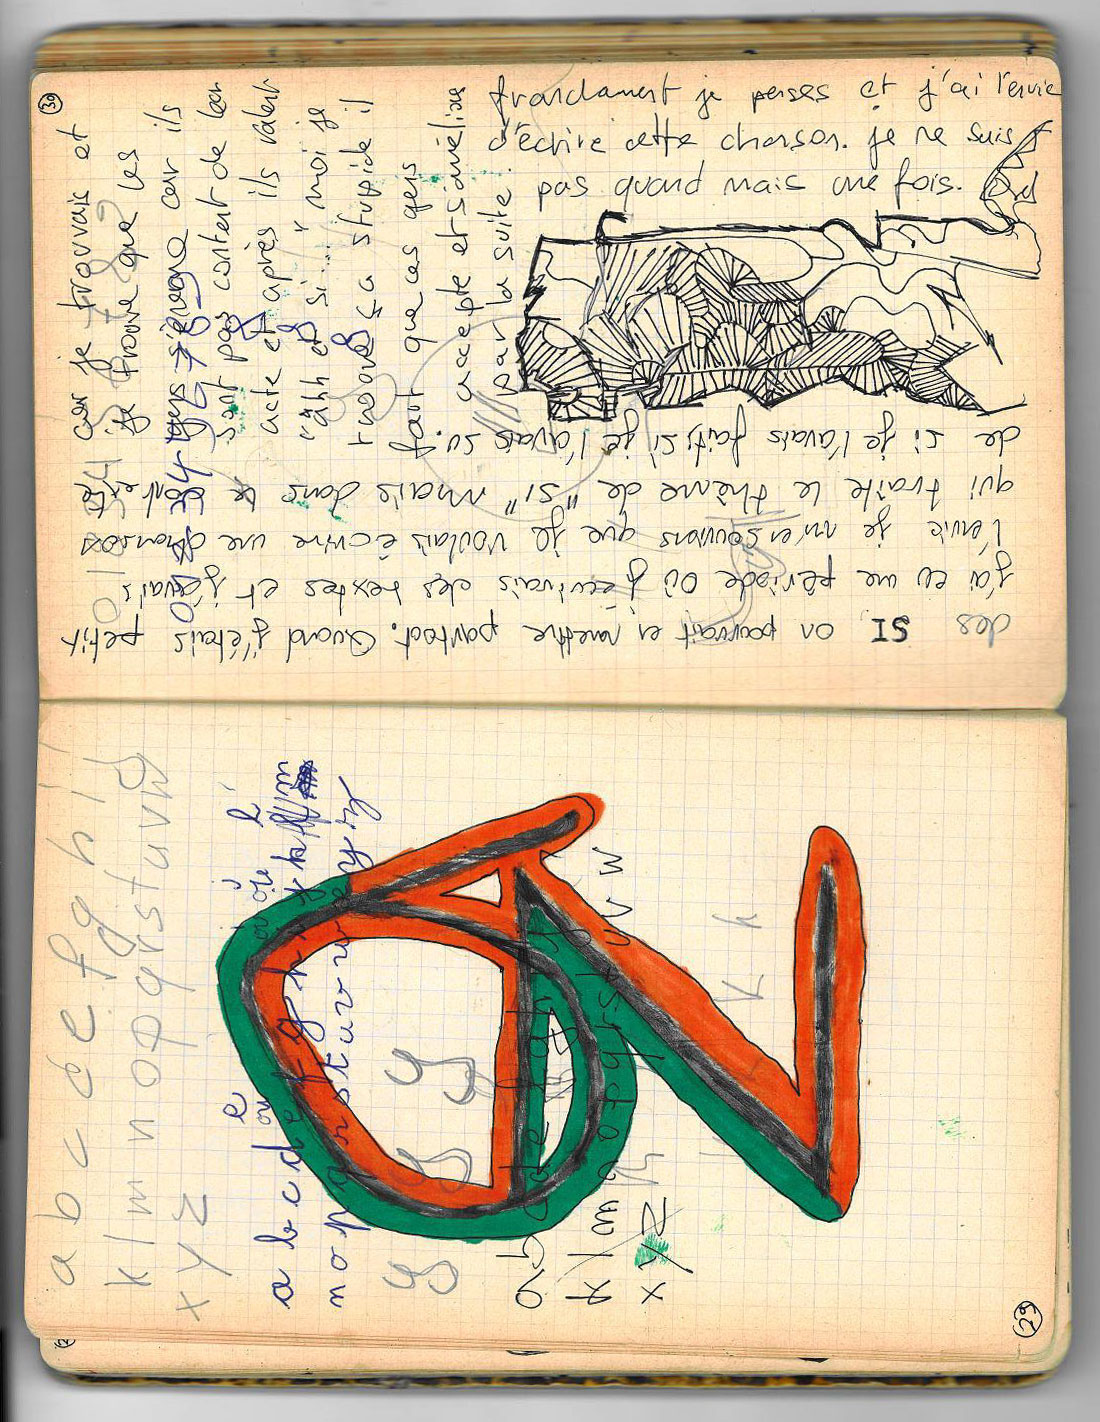 30
des SI, on pourrait en mettre partout. Quand j'étais petit
j'ai eu une période où j'écrivais des textes et j'avais
l'envie je m'en souviens que je voulais écrire une chanson
qui traite le thème de "si" mais dans le
de si je l'avais fait, si je l'avais su.
car je trouvais et
je trouve que les
gens s'énerve car ils
sont pas content de leur
acte et après ils ralent
"ahh et si..." moi je
trouve ça stupide il
faut que ces gens
accepte et s'améliore
par la suite.
franchement je penses et j'ai l'envie
d'écrire cette chanson. je ne suis
pas quand mais une fois.
a b c d e f g h i j
k l m n o p q r s t u v w
x y z
a b c d e f g h i j k l m
n o p q r s t u v w x y z
y y
y y
a b c d e f g h i j
k l m n o p q r s t u v w
x y z
k k
29